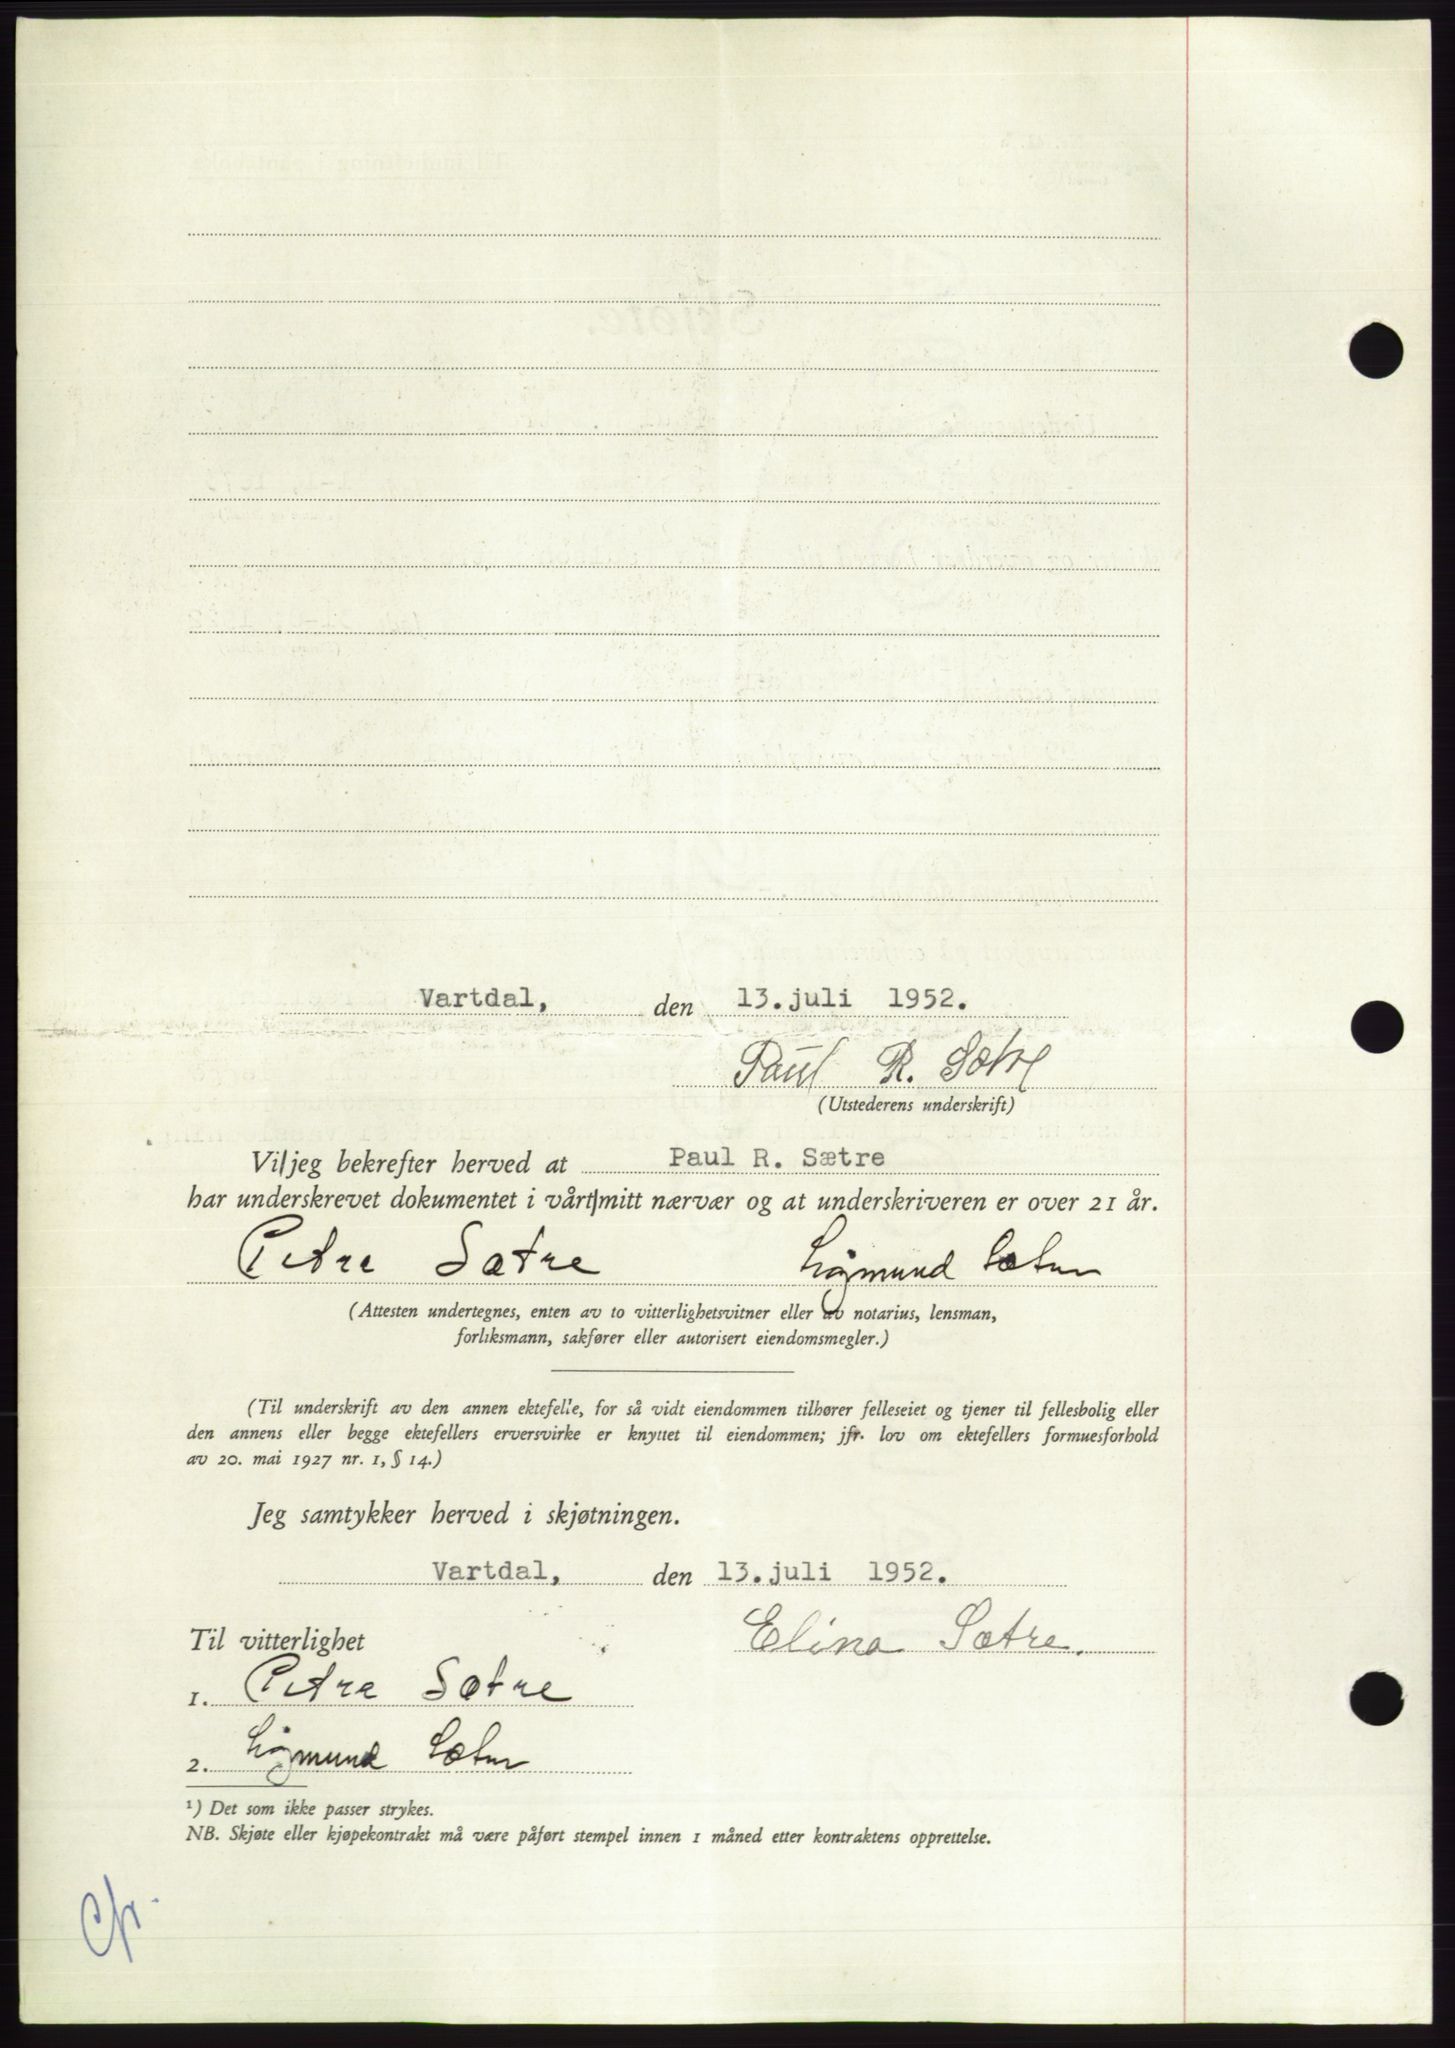 Vartdal, den 13. juli 1952.
Paul R. Sætre
(Utstederens underskrift)
Vi/jeg bekrefter herved at Paul R. Sætre
har underskrevet dokumentet i vårt/mitt nærvær og at underskriveren er over 21 år.
Petra Sætre Sigmund Sætre
(Attesten undertegnes, enten av to vitterlighetsvitner eller av notarius, lensman,
forliksmann, sakfører eller autorisert eiendomsmegler.)
(Til underskrift av den annen ektefelle, for så vidt eiendommen tilhører felleseiet og tjener til fellesbolig eller
den annens eller begge ektefellers erversvirke er knyttet til eiendommen; jfr. lov om ektefellers formuesforhold
av 20. mai 1927 nr. 1, § 14.)
Jeg samtykker herved i skjøtningen.
Vartdal, den 13. juli 1952.
Til vitterlighet Elina Sætre.
1. Petra Sætre
2. Sigmund Sætre
¹) Det som ikke passer strykes.
NB. Skjøte eller kjøpekontrakt må være påført stempel innen 1 måned etter kontraktens opprettelse.